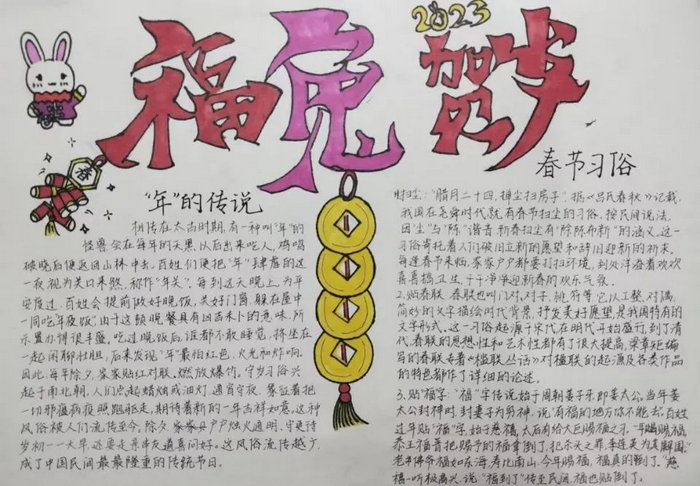 福兔贺岁
2023
春
"年"的传说
相传在太古时期,有一种叫"年"的
怪兽会在每年的天黑以后出来吃人,鸡鸣
破晓后便返回山林中去。百姓们便把"年"肆虐的这
一夜视为关口来熬,称作"年关"。每到这天晚上,为平
安度过,百姓会提前做好晚饭,关好门窗,躲在屋中
一同吃年夜饭。由于这顿晚餐具有凶吉未卜的意味,所
示置办得很丰盛,吃过晚饭后,谁都不敢睡觉,挤坐在
一起闲聊壮胆,后来发现"年"最怕红色,火光和炸响。
因此,每年除夕,家家贴红对联、燃放爆竹。守岁习俗兴
起于南北朝,人们点起蜡烛或油灯,通宵守夜,象征着把
一切邪瘟病疫照跑驱走,期待着新的一年吉祥如意,这种
风俗被人们流传至今。除夕家家户户烛火通明,守更待
岁初一一大早,还要走亲串友道喜问好。这风俗流传越广,
成了中国民间最最隆重的传统节日。
春节习俗
扫尘:"腊月二十四,掸尘扫房子",据《吕氏春秋》记载,
我国在尧舜时代就有春节扫尘的习俗。按民间说法,
因"尘"与"陈"谐音,新春扫尘有"除陈布新"的涵义,这一
习俗寄托着人们破旧立新的愿望和辞旧迎新的祈求。
每逢春节来临,家家户户都要打扫环境,到处洋溢着欢欢
喜喜搞卫生、干干净净迎新春的欢乐气氛。
2.贴春联 春联也叫门对、对子、桃符等,它以工整、对偶、
简妙的文字描绘时代背景,抒发美好愿望,是我国特有的
文字形式。这一习俗起源于宋代,在明代开始盛行,到了清
代,春联的思想性和艺术性都有了很大提高,梁章矩编
写的春联专著《楹联丛话》对楹联的起源及各类作品
的特色都作了详细的论述。
3.贴"福"字:"福"字传说始于周朝姜子牙即姜太公,当年姜
太公封神时,封妻子为穷神,说"有福的地方你不能去",百姓
过年贴"福"字,始于慈禧,太后有个大臣赐福之,
恭王福晋把赐予的福拿倒了,犯杀头之罪,李连英为其解围:"
老牛佛爷福如东海,寿比南山,今年赐福,福真的到了。"慈
禧一听极高兴,说"福到了"传至民间,福也贴倒了。